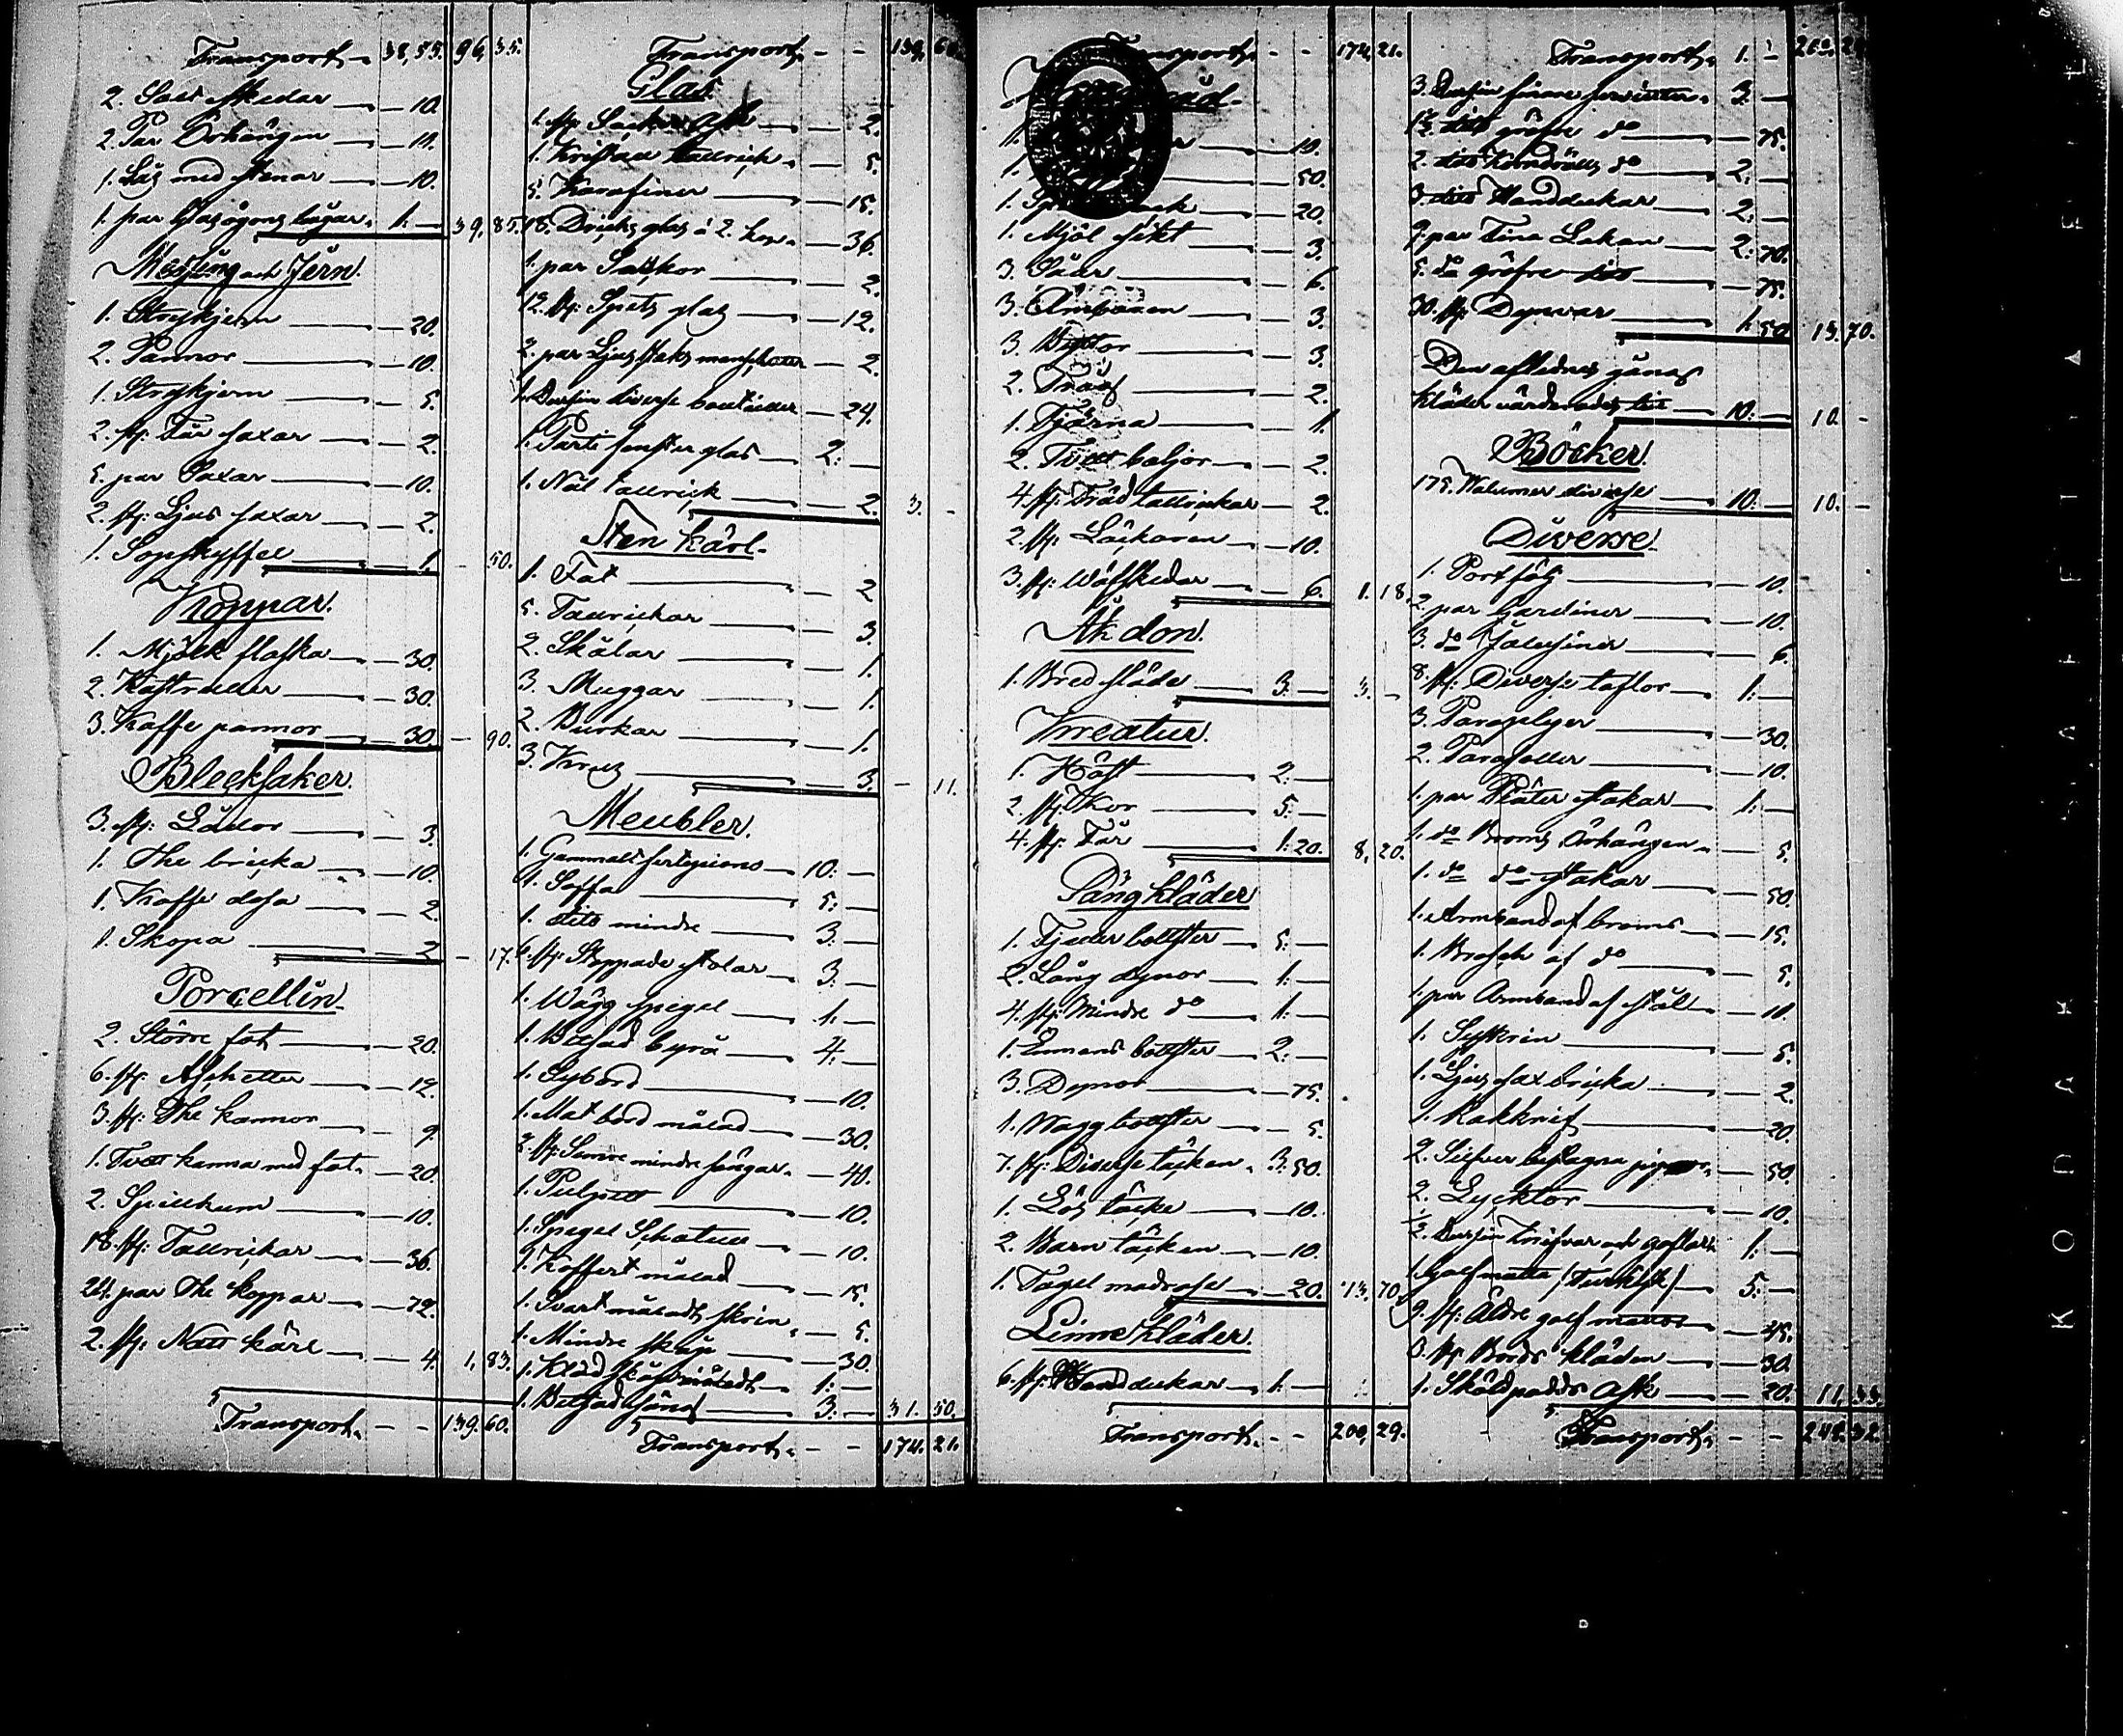 Transport 38,55. 96,35.
2. Salt skedar — 10.
2. Par Örhängen — 10.
1. Lås med stenar — 10.
1. par Glasögons bågar. 1. — 39,85.
Messing och Jern.
1. Strykjern — 20.
2. Pannor — 10.
1. Strykjern — 5.
2. st: Får saxar — 2.
5. par Saxar — 10.
2. st: Ljus saxar — 2.
1. Sopskyffel — 1. — 50.
Koppar.
1. Mjölk flaska — 30.
2. Kastruller — 30.
3. Kaffe pannor — 30. — 90.
Blecksaker.
3. st: Lådor — 3.
1. The bricka — 10.
1. Kaffe dosa — 2.
1. Skopa — 2 — 17.
Porcellin.
2. Större fat — 20.
6. st: Aschetter — 12.
3. st: The kannor — 9.
1. Tvätt kanna med fat. — 20.
2. Spillkum — 10.
18. st: Tallrickar — 36.
24. par The koppar — 72.
2. st: Natt kärl — 4. 1,83.
Transport. - - 139.60.
Transport. - - 139,60.
Glas.
1. st: Socker Ask — 2.
1. Kristall tallrick. — 5.
5. Karafiner — 15.
18. Dricks glas à 2. kop. — 36.
1. par Saltkar — 2.
12. st: Spets glas — 12.
2. par Ljus staks manschetter — 2.
1. Dussin diverse bouteiller — 24.
1. Parti fenster glas — 2. —
1. Nät tallrick — 2. 3. -
Sten kärl.
1. Fat — 2
5. Tallrickar — 3.
2. Skålar — 1.
3. Muggar — 1.
2. Burkar — 1.
3. Krus — 3. — 11.
Meubler.
1. Gammalt fortepiano — 10. —
1. Soffa — 5. —
1. dito mindre — 3. —
6. st: Stoppade stolar — 3. —
1. Vägg spegel — 1. —
1. Bilsad byrå — 4. —
1. Sybord — 10.
1. Mat bord målad — 30.
2. st: mindre sängar. — 40.
1. Pulpett — 10.
1. Spegel Schatull — 10.
Koffert målad — 15.
1. Svart måladt skrin. — 5.
1. Mindre skåp — 30.
1. Kläd skåp måladt — 1. —
1. Bilsad Säng — 3. — 31. 50.
Transport. - - 174. 21.
Transport. - - 174,21.
1. — 10.
1. — 50.
1. — 20.
1. Mjöl sikt — 3.
3. Såar — 6.
3. Ämbaren — 3.
3. Byttor — 3.
2. Tråg — 2.
1. Tjärna — 1.
2. Tvätt baljor — 2.
4. st: Träd tallrickar — 2.
2. st: — 10.
3. st: Wäfskedar — 6. 1.18.
Åkdon.
1. Bred släde — 3. — 3. -
Kreatur.
1. Häst — 2. —
2. st: Kor — 5. —
4. st: Får — 1.20. 8,20.
Sängkläder
1. Fjeder bolster — 5. —
2. Lång dynor — 1. —
4. st: Mindre do — 1. —
1. Enmans bolster — 2. —
3. Dynor — 75.
1. Vagg bolster — 5.
7. st: Diverse täcken. 3.50.
1. Lös täcke — 10.
2. Barn täcken — 10.
1. Tagel madrass — 20. 13,70.
Linnekläder.
6. st: Handdukar — 1. —
Transport. - - 200,29.
Transport. 1. -
3. Dussin finare servietter. 3. —
dito gröfre do — 75.
2. dito do 2. —
3. dito Handdukar — 2. —
9. par Fina Lakan — 2.70.
5. do gröfre dito — 75.
30. st: Dynvar — 1.50 13.70.
Den aflednes gång
kläder värderades till — 10. — 10. -
Böcker.
175. Volumer diverse — 10. — 10. -
Diverse.
1. Portfölj — 10.
2. par Gardiner — 10.
3. do Jalusiner — 6.
8. st: Diverse taflor — 1. —
3. Paraplyer — 30.
2. Parasoller — 10.
1. par Pläter stakar — 1. —
1. do Brons Örhängen. — 5.
1. do do stakar — 50.
1. Armband af brons — 15.
1. Brosch af do — 5.
1. par Armband af stål — 10.
1. Syskrin — 5.
1. Ljus sax bricka — 2.
1. Rakknif — 20.
2. Silfver beslagna pipor. — 50.
2. Lycktor — 10.
½. Dussin knifvar och gafflar 1. —
1. Golfmatta (Turkisk) — 5. —
9. st: Äldre golf mattor — 45.
3. st: Bords kläden — 30.
1. Sköldpadds Ask — 20. 11,33.
Transport. - - 245.32.
KODAK SAFETY FILM